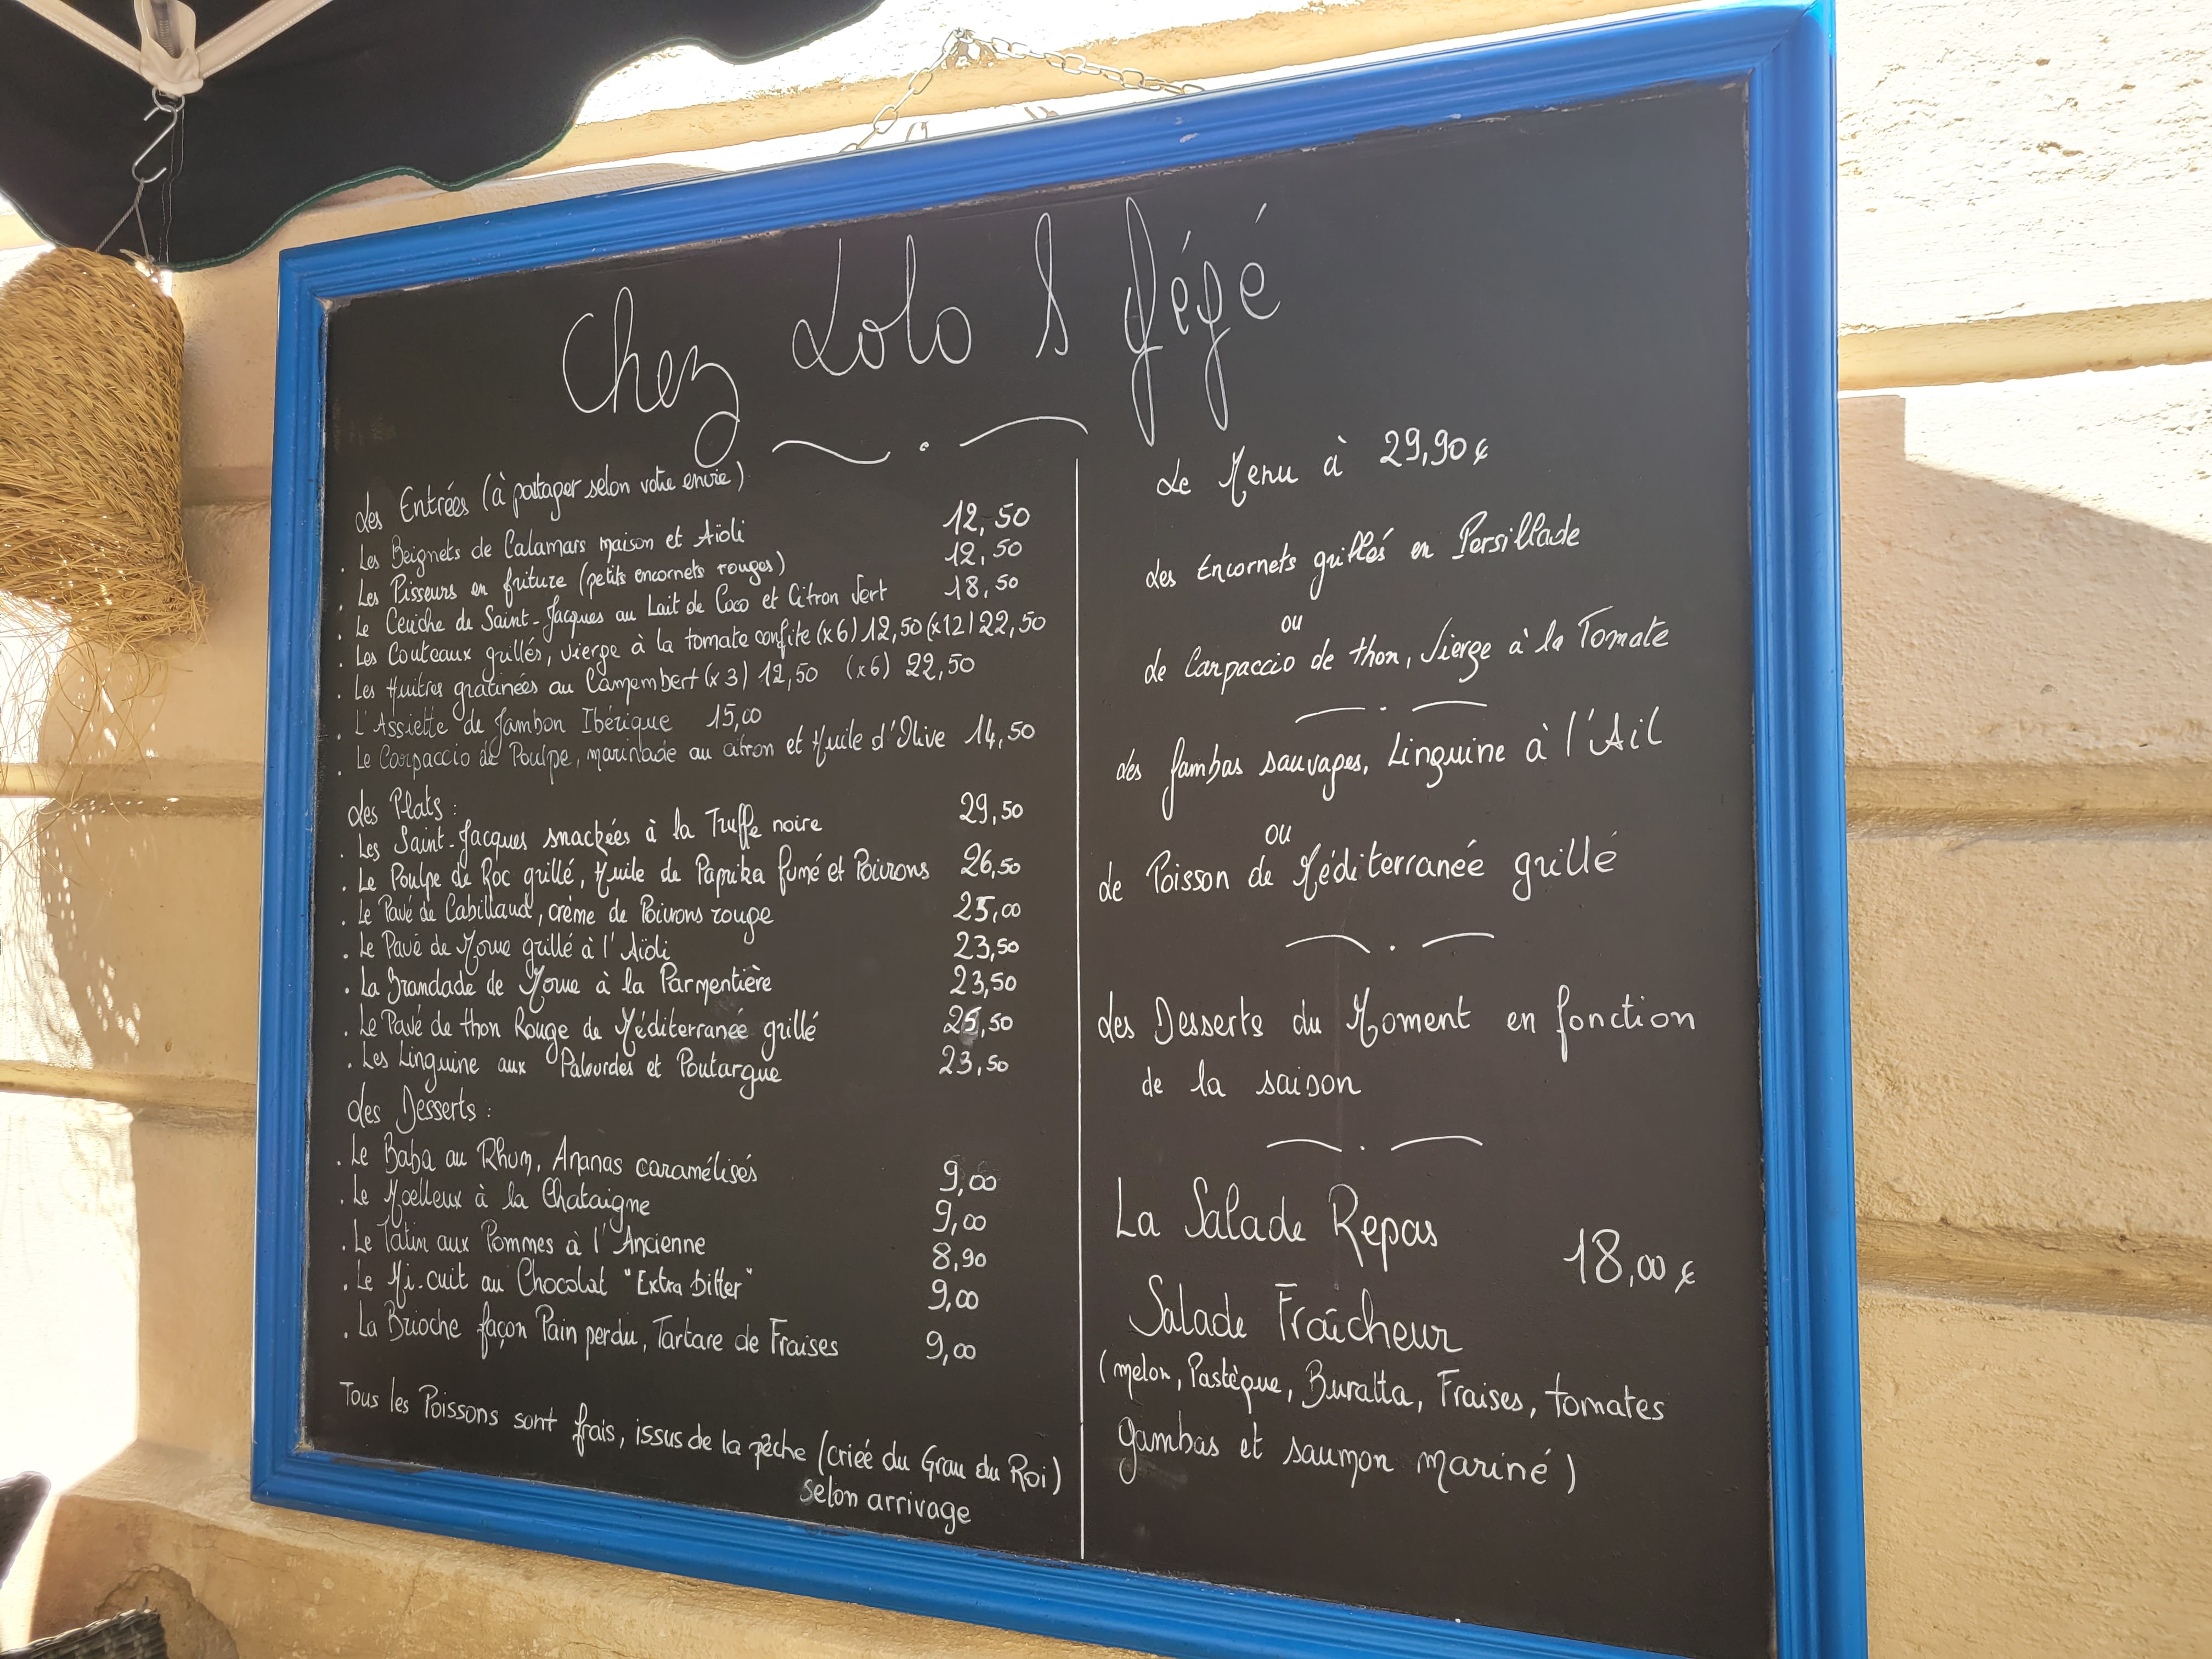 Chez Lolo & Gégé
Les Entrées (à partager selon votre envie)
. Les Beignets de Calamars maison et Aïoli 12,50
. Les Pisseurs en friture (petits encornets rouges) 12,50
. Le Ceviche de Saint-Jacques au Lait de Coco et Citron Vert 18,50
. Les Couteaux grillés, vierge à la tomate confite (x6) 12,50 (x12) 22,50
. Les Huitres gratinées au Camembert (x3) 12,50 (x6) 22,50
. L'Assiette de Jambon Ibérique 15,00
. Le Carpaccio de Poulpe, marinade au citron et Huile d'Olive 14,50
Les Plats :
. Les Saint-Jacques snackées à la Truffe noire 29,50
. Le Poulpe de Roc grillé, Huile de Paprika fumé et Poivrons 26,50
. Le Pavé de Cabillaud, crème de Poivrons rouge 25,00
. Le Pavé de Morue grillé à l'Aïoli 23,50
. La Brandade de Morue à la Parmentière 23,50
. Le Pavé de thon Rouge de Méditerranée grillé 25,50
. Les Linguine aux Palourdes et Poutargue 23,50
Les Desserts :
. Le Baba au Rhum, Ananas caramélisés 9,00
. Le Moelleux à la Chataigne 9,00
. Le Tatin aux Pommes à l'Ancienne 8,90
. Le Mi-cuit au Chocolat "Extra bitter" 9,00
. La Brioche façon Pain perdu, Tartare de Fraises 9,00
Tous les Poissons sont frais, issus de la pêche (criée du Grau du Roi)
selon arrivage
Le Menu à 29,90€
Les Encornets grillés en Persillade
ou
Le Carpaccio de thon, Vierge à la Tomate
Les Gambas sauvages, Linguine à l'Ail
ou
Le Poisson de Méditerranée grillé
Les Desserts du Moment en fonction
de la saison
La Salade Repas
18,00€
Salade Fraîcheur
(melon, Pastèque, Buratta, Fraises, tomates
gambas et saumon mariné)